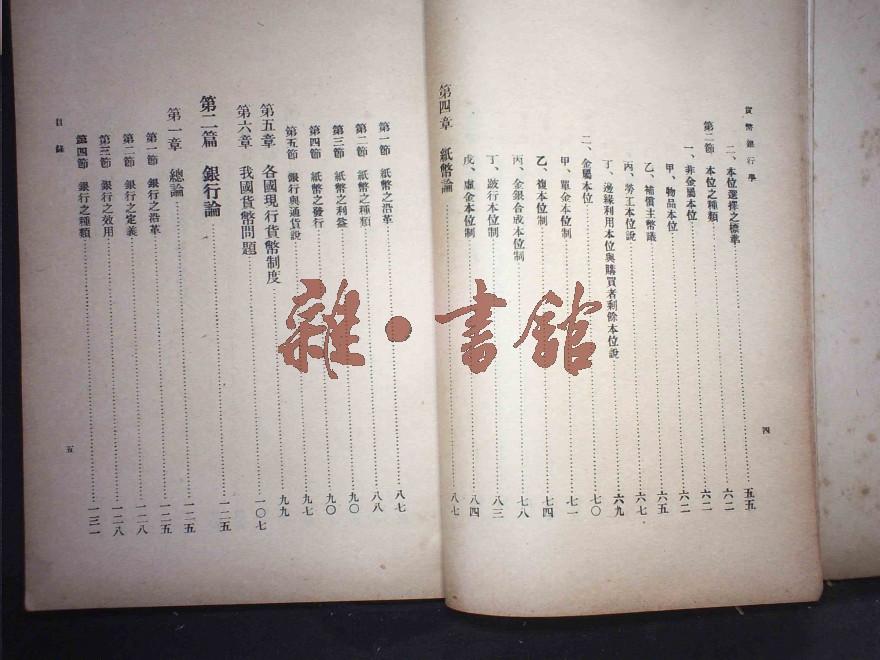 貨幣銀行學
二、本位選擇之標準……五五
第二節 本位之種類……六二
一、非金屬本位……六二
甲、物品本位……六二
乙、補償主幣議……六五
丙、勞工本位說……六七
丁、邊緣利用本位與購買者剩餘本位說……六九
二、金屬本位……七〇
甲、單金本位制……七一
乙、複本位制……七四
丙、金銀合成本位制……七八
丁、跛行本位制……八三
戊、虛金本位制……八四
第四章 紙幣論……八七
四
第一節 紙幣之沿革……八七
第二節 紙幣之種類……八八
第三節 紙幣之利益……九〇
第四節 紙幣之發行……九〇
第五節 銀行與通貨說……九七
第五章 各國現行貨幣制度……九九
第六章 我國貨幣問題……一〇七
第二篇 銀行論……一二五
第一章 總論……一二五
第一節 銀行之沿革……一二五
第二節 銀行之定義……一二八
第三節 銀行之效用……一二八
第四節 銀行之種類……一三一
目錄
五
雜·書館